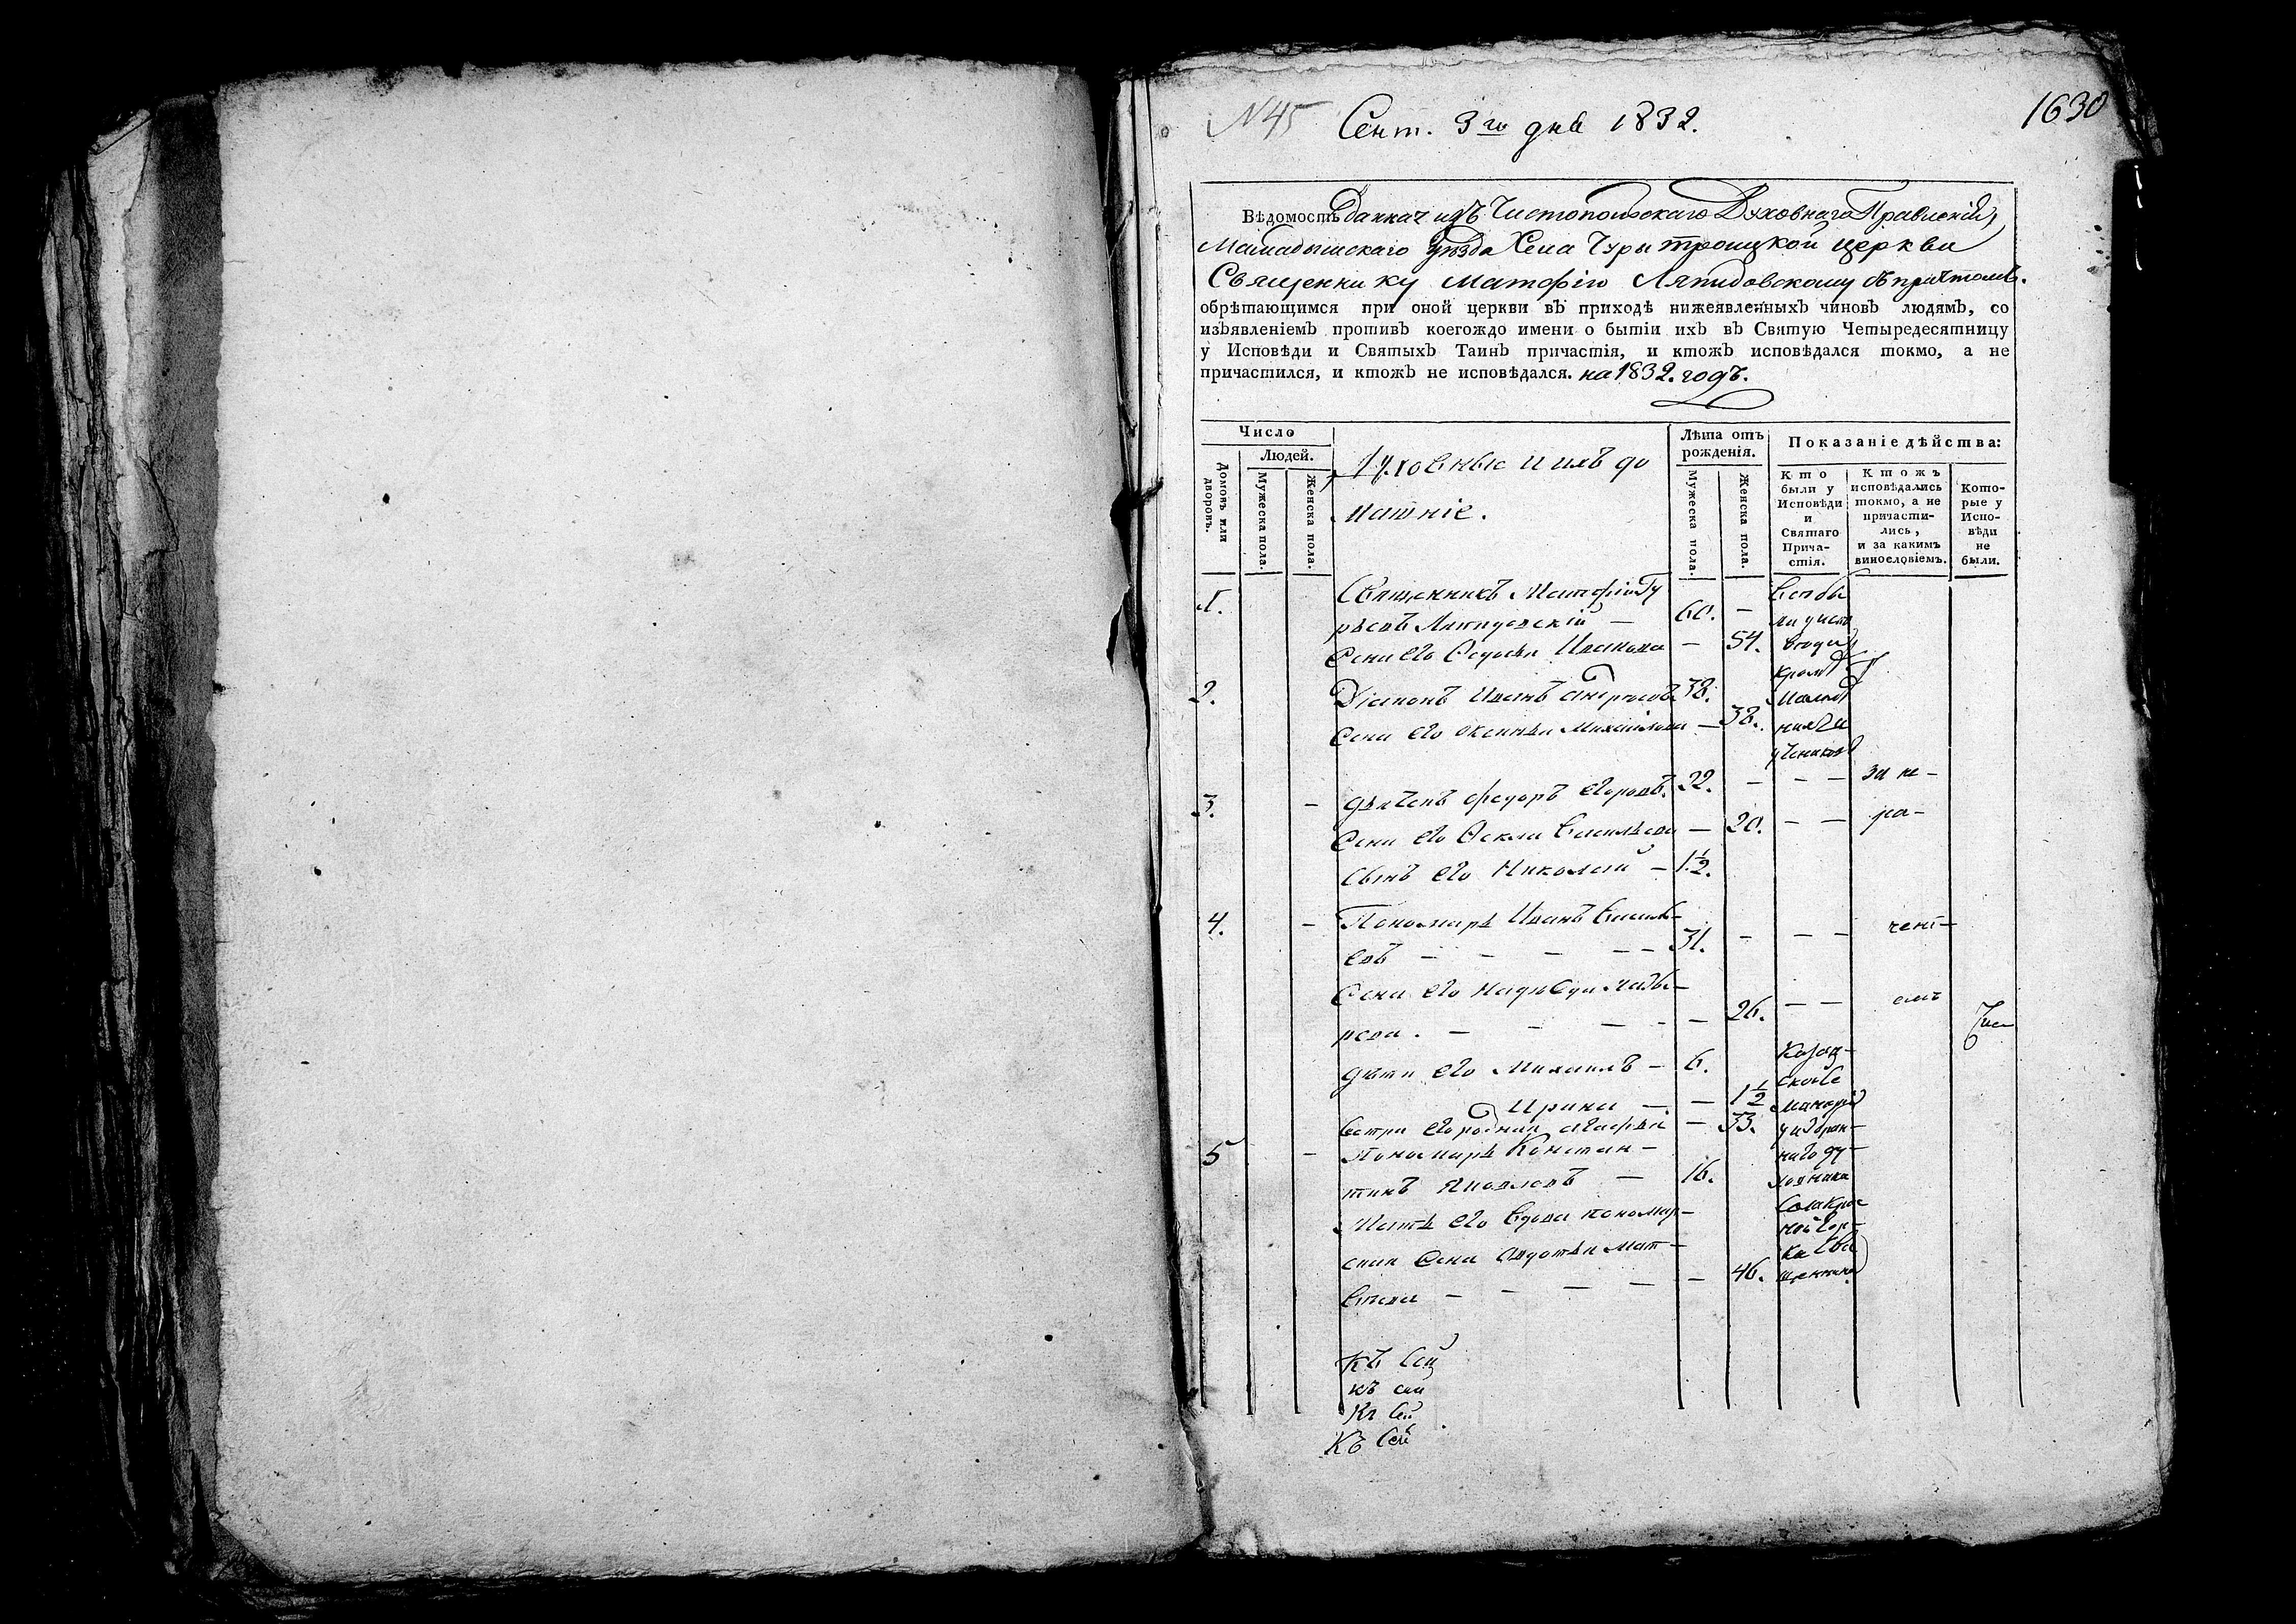 N45 Сент. 3го дня 1832. 1630
Вѣдомость Данная изъ Чистопольскаго Духовнаго Правленія,
Мамадышскаго уѣзда Села Чуры троицкой церкви
Священнику Матфѣю Ляпидовскому съ причтомъ.
обрѣтающимся при оной церкви въ приходѣ нижеявленныхъ чиновъ людямъ, со
изъявленіемъ противъ коегождо имени о бытіи ихъ въ Святую Четыредесятницу
у Исповѣди и Святыхъ Таинъ причастія, и ктожъ исповѣдался токмо, а не
причастился, и ктожъ не исповѣдался. на 1832. годъ.
Число
Людей.
Домовъ или дворовъ.
Мужеска пола.
Женска пола.
Духовные и ихъ до
машніе.
Лѣта отъ
рожденія.
Мужеска пола.
Женска пола.
Показаніе дѣйства:
Кто
были у
Исповѣди
и
Святаго
Прича-
стія.
Ктожъ
исповѣдались
токмо, а не
причасти-
лись,
и за какимъ
винословіемъ.
Кото-
рые у
Испо-
вѣди
не
были.
1. Священникъ Матфій Гу
рьевъ Ляпидовскій — 60. —
Жена его Федосья Иванова — 54.
2. Діаконъ Иванъ Андреевъ 38.
Жена его Ксенія Михайлова — 38.
кромѣ
учениковъ
3. — дьячекъ Федоръ Егоровъ. 22. — — — за не-
Жена его Фекла Васильева — 20. — — ра-
Сынъ его Николай — 1½.
4. — Пономарь Иванъ Василь-
евъ — — — — — 31. — — — чені-
Жена его Надежда Лазы-
рева. — — — — — 26. — — емъ
дѣти его Михаилъ — 6.
Ирина — — 1½
Сестра его родная Марфа — 33.
5 — Пономарь Констан-
тинъ Яковлевъ — 16.
Мать его вдова пономар-
ская жена Авдотья Мат-
вѣева — — — — — 46.
Казан-
ской
щенника
Къ сей
къ сей
Къ сей
Къ сей